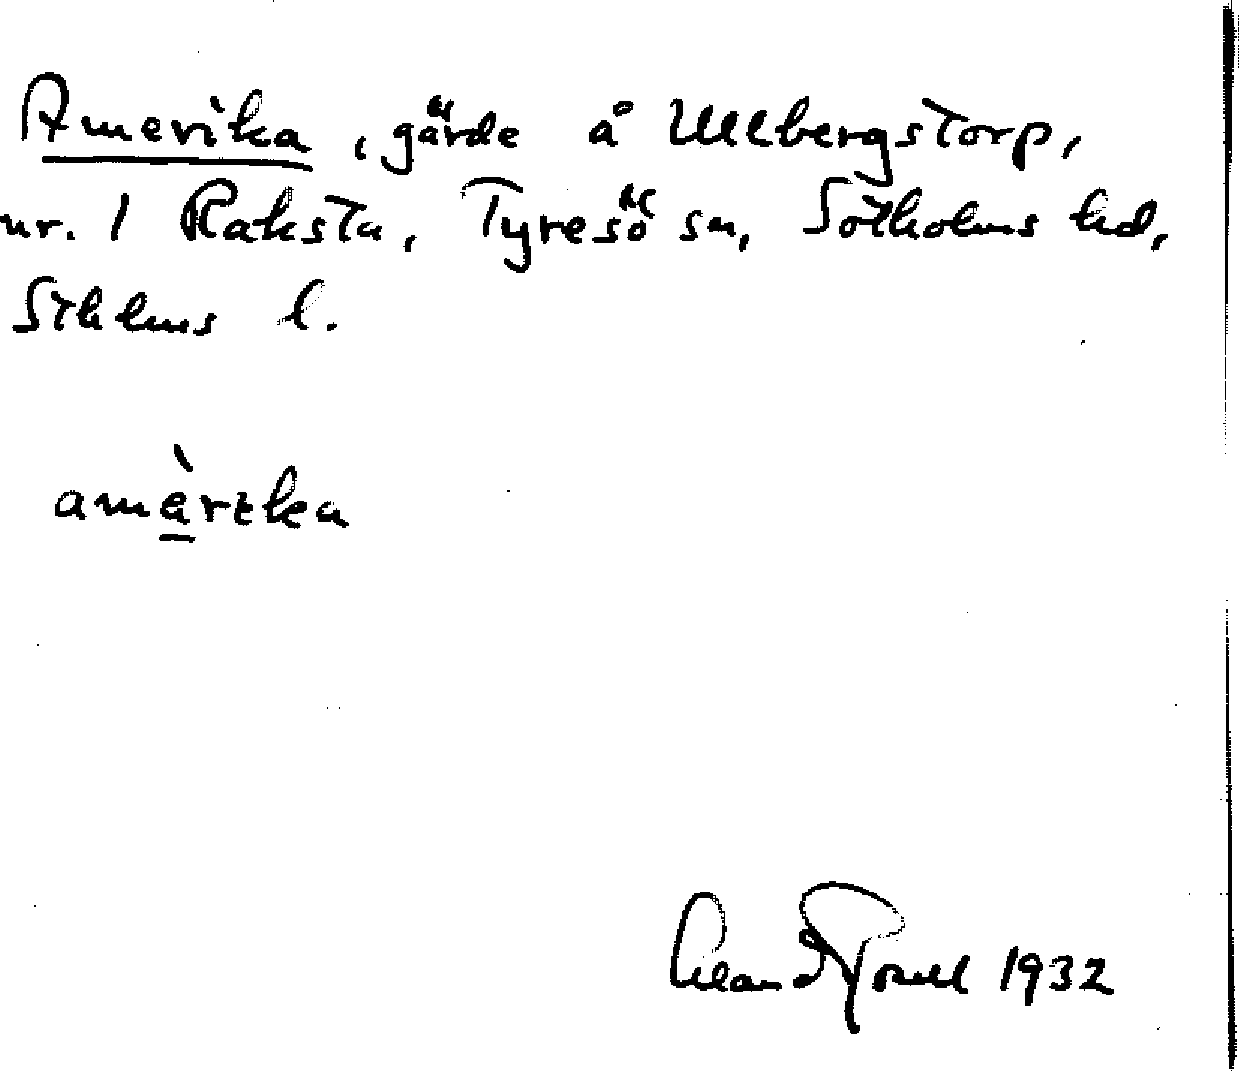 Amerika, gärde å Ullbergstorp,
nr. 1 Raksta, Tyresö sn, Sotholms hd,
Sthlms l.
amèrika
1932